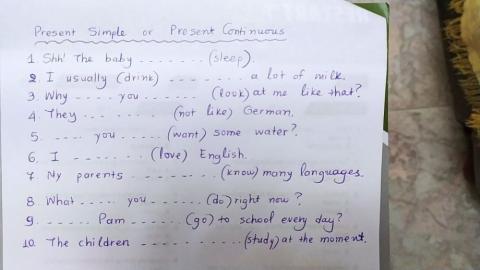 Present Simple or Present Continuous
1. Shh! The baby ....... (sleep).
2. I usually (drink) ........ a lot of milk.
3. Why .... you ...... (look) at me like that?
4. They ........ (not like) German.
5. .... you ..... (want) some water?
6. I ....... (love) English.
7. My parents ......... (know) many languages.
8. What ..... you ...... (do) right now?
9. ...... Pam ...... (go) to school every day?
10. The children .......... (study) at the moment.